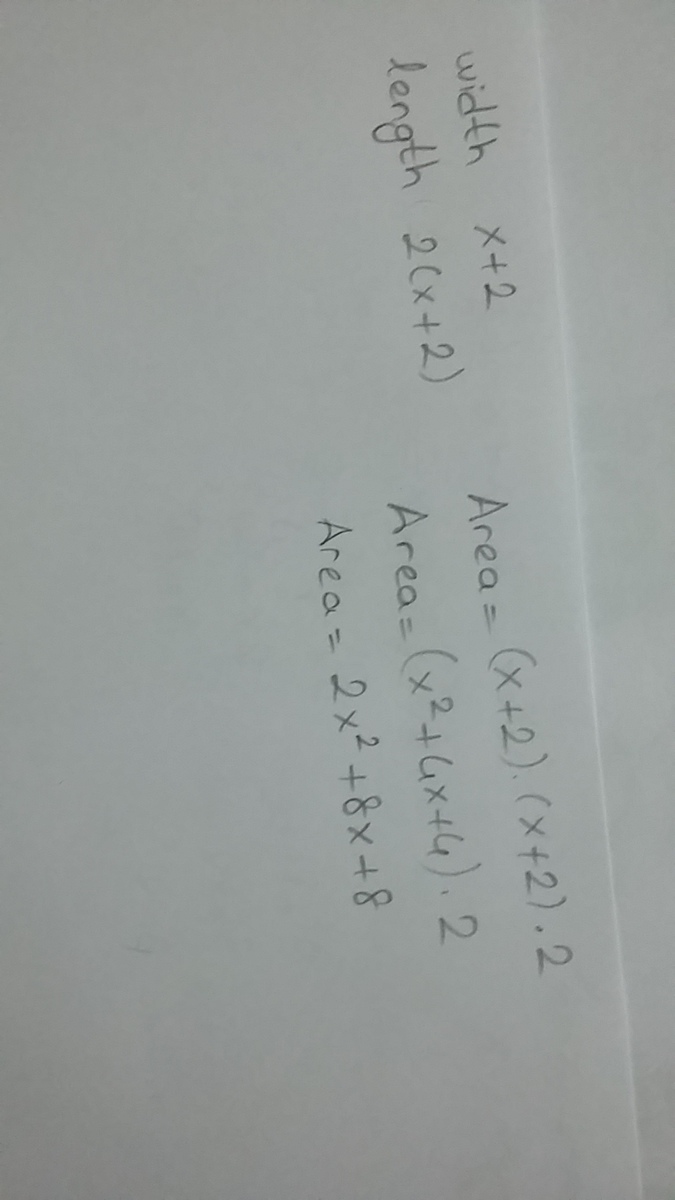 width x+2
length 2(x+2)
Area = (x+2).(x+2).2
Area = (x²+4x+4).2
Area = 2x²+8x+8